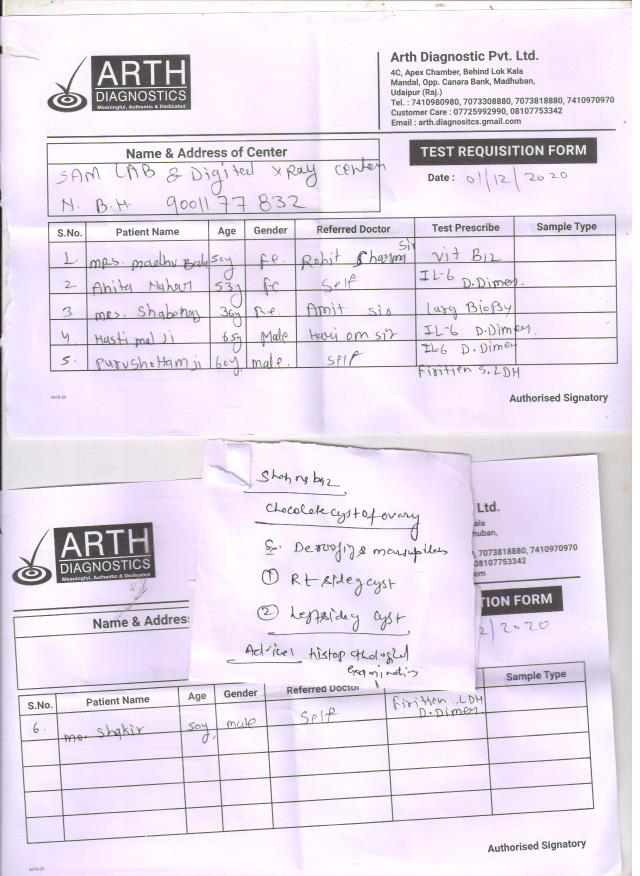 ARTH
DIAGNOSTICS
Meaningful, Authentic & Dedicated
Arth Diagnostic Pvt. Ltd.
4C, Apex Chamber, Behind Lok Kala
Mandal, Opp. Canara Bank, Madhuban,
Udaipur (Raj.)
Tel. : 7410980980, 7073308880, 7073818880, 7410970970
Customer Care : 07725992990, 08107753342
Email : arth.diagnositcs.gmail.com
Name & Address of Center
SAM LAB & Digital X Ray Center
N. B.H 9001177832
TEST REQUISITION FORM
Date : 01/12/2020
S.No. Patient Name Age Gender Referred Doctor Test Prescribe Sample Type
1. mrs. madhu Bala 50y Fe. Rohit Sharma Sir vit B12
2 Anita 53y Fe Self IL-6 D.Dimer
3 mrs. 36y Fe. Amit sir Biopsy
4 Hastimal Ji 65y Male Hari om sir IL-6 D.Dimer
5. Purushottam ji 60y. male. self IL-6 D.Dimer
Firitien S.LDH
Authorised Signatory
Chocolate cyst of ovary
① Rt side cyst
② Left side cyst
Advice histopathological
examination
ARTH
DIAGNOSTICS
Meaningful, Authentic & Dedicated
Ltd.
ala
huban,
7073818880, 7410970970
08107753342
om
Name & Addres
TION FORM
2/2020
S.No. Patient Name Age Gender Referred Doctor Sample Type
6. mo. Shakir 50y. male Self Firitien, LDH
D.Dimer
Authorised Signatory